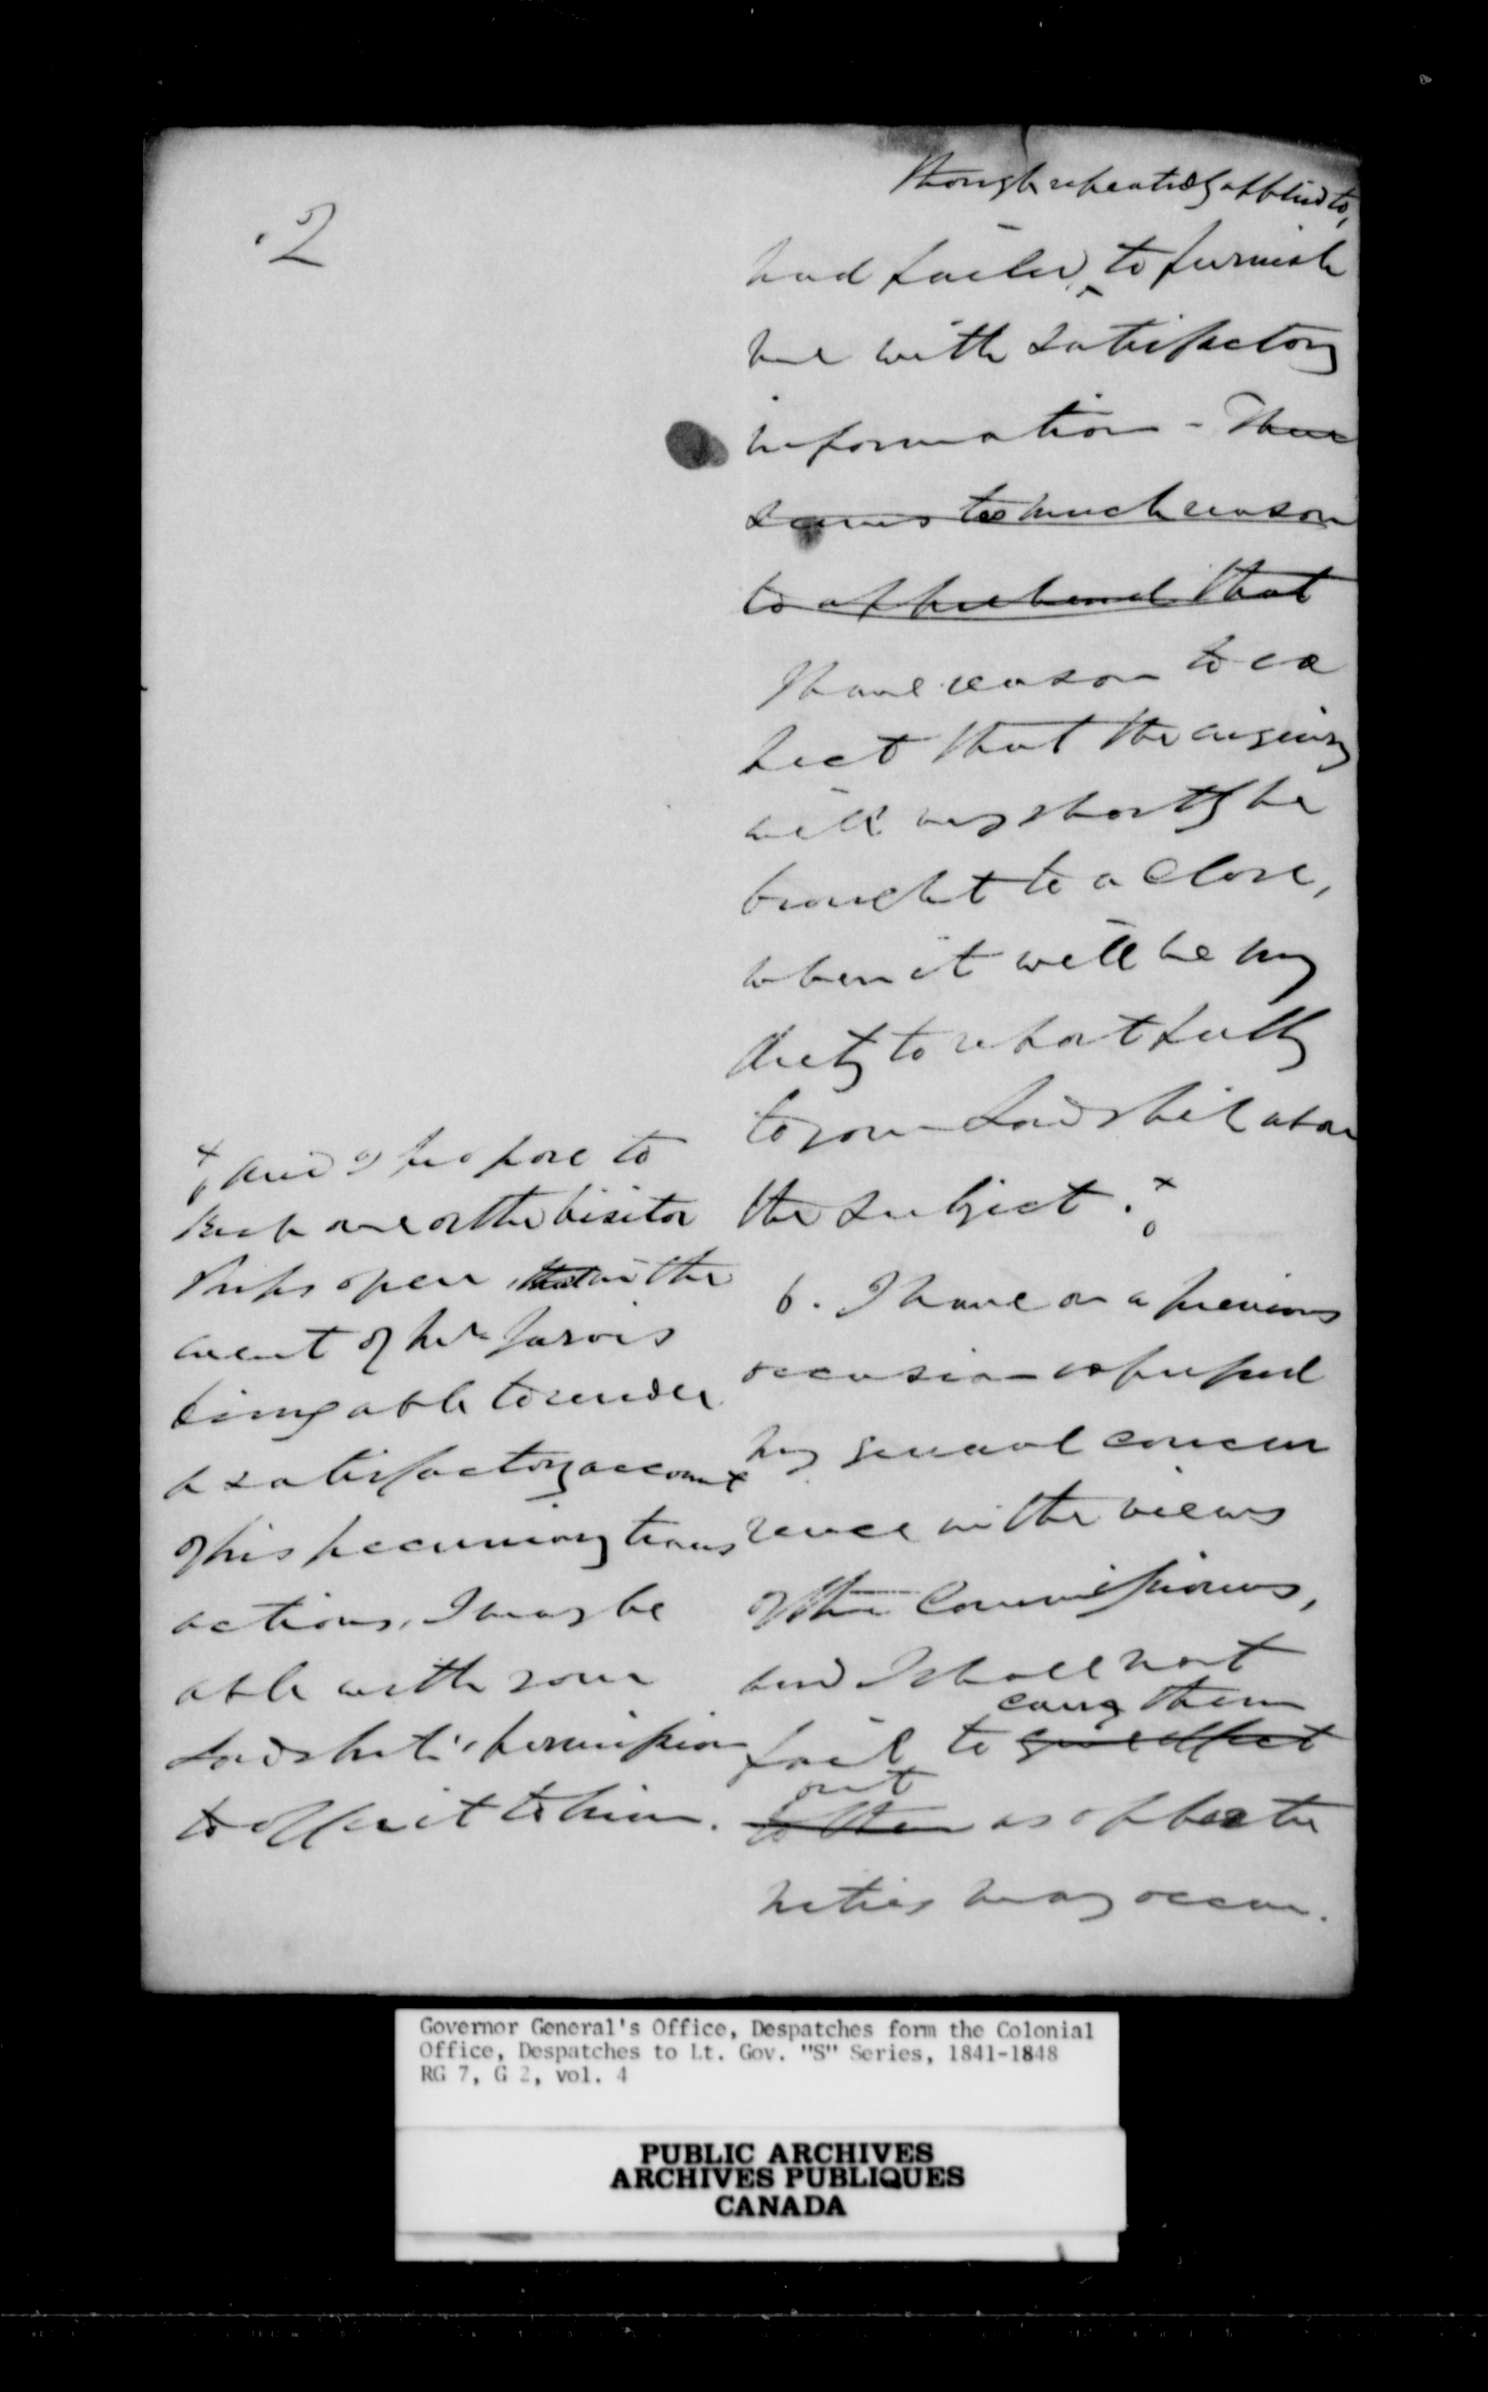 2
though repeatedly applied to,
had failed, to furnish
me with satisfactory
information - There
seems too much reason
to apprehend that
I have reason to ex
pect that the enquiry
will very shortly be
brought to a close,
when it will be my
duty to report fully
to your Lordship upon
the subject.
and I propose to
keep one of the visitor
ships open, that in the
event of Mr Jarvis
being able to render
a satisfactory account
of his pecuniary trans
actions, I may be
able with your
Lordship's permission
to offer it to him.
6. I have on a previous
occasion expressed
my general concur
rence in the views
of the Commissioners,
and I shall not
carry them
fail to give effect
out
to them as opportu
nities may occur.
Governor General's Office, Despatches form the Colonial
Office, Despatches to Lt. Gov. "S" Series, 1841-1848
RG 7, G 2, vol. 4
PUBLIC ARCHIVES
ARCHIVES PUBLIQUES
CANADA